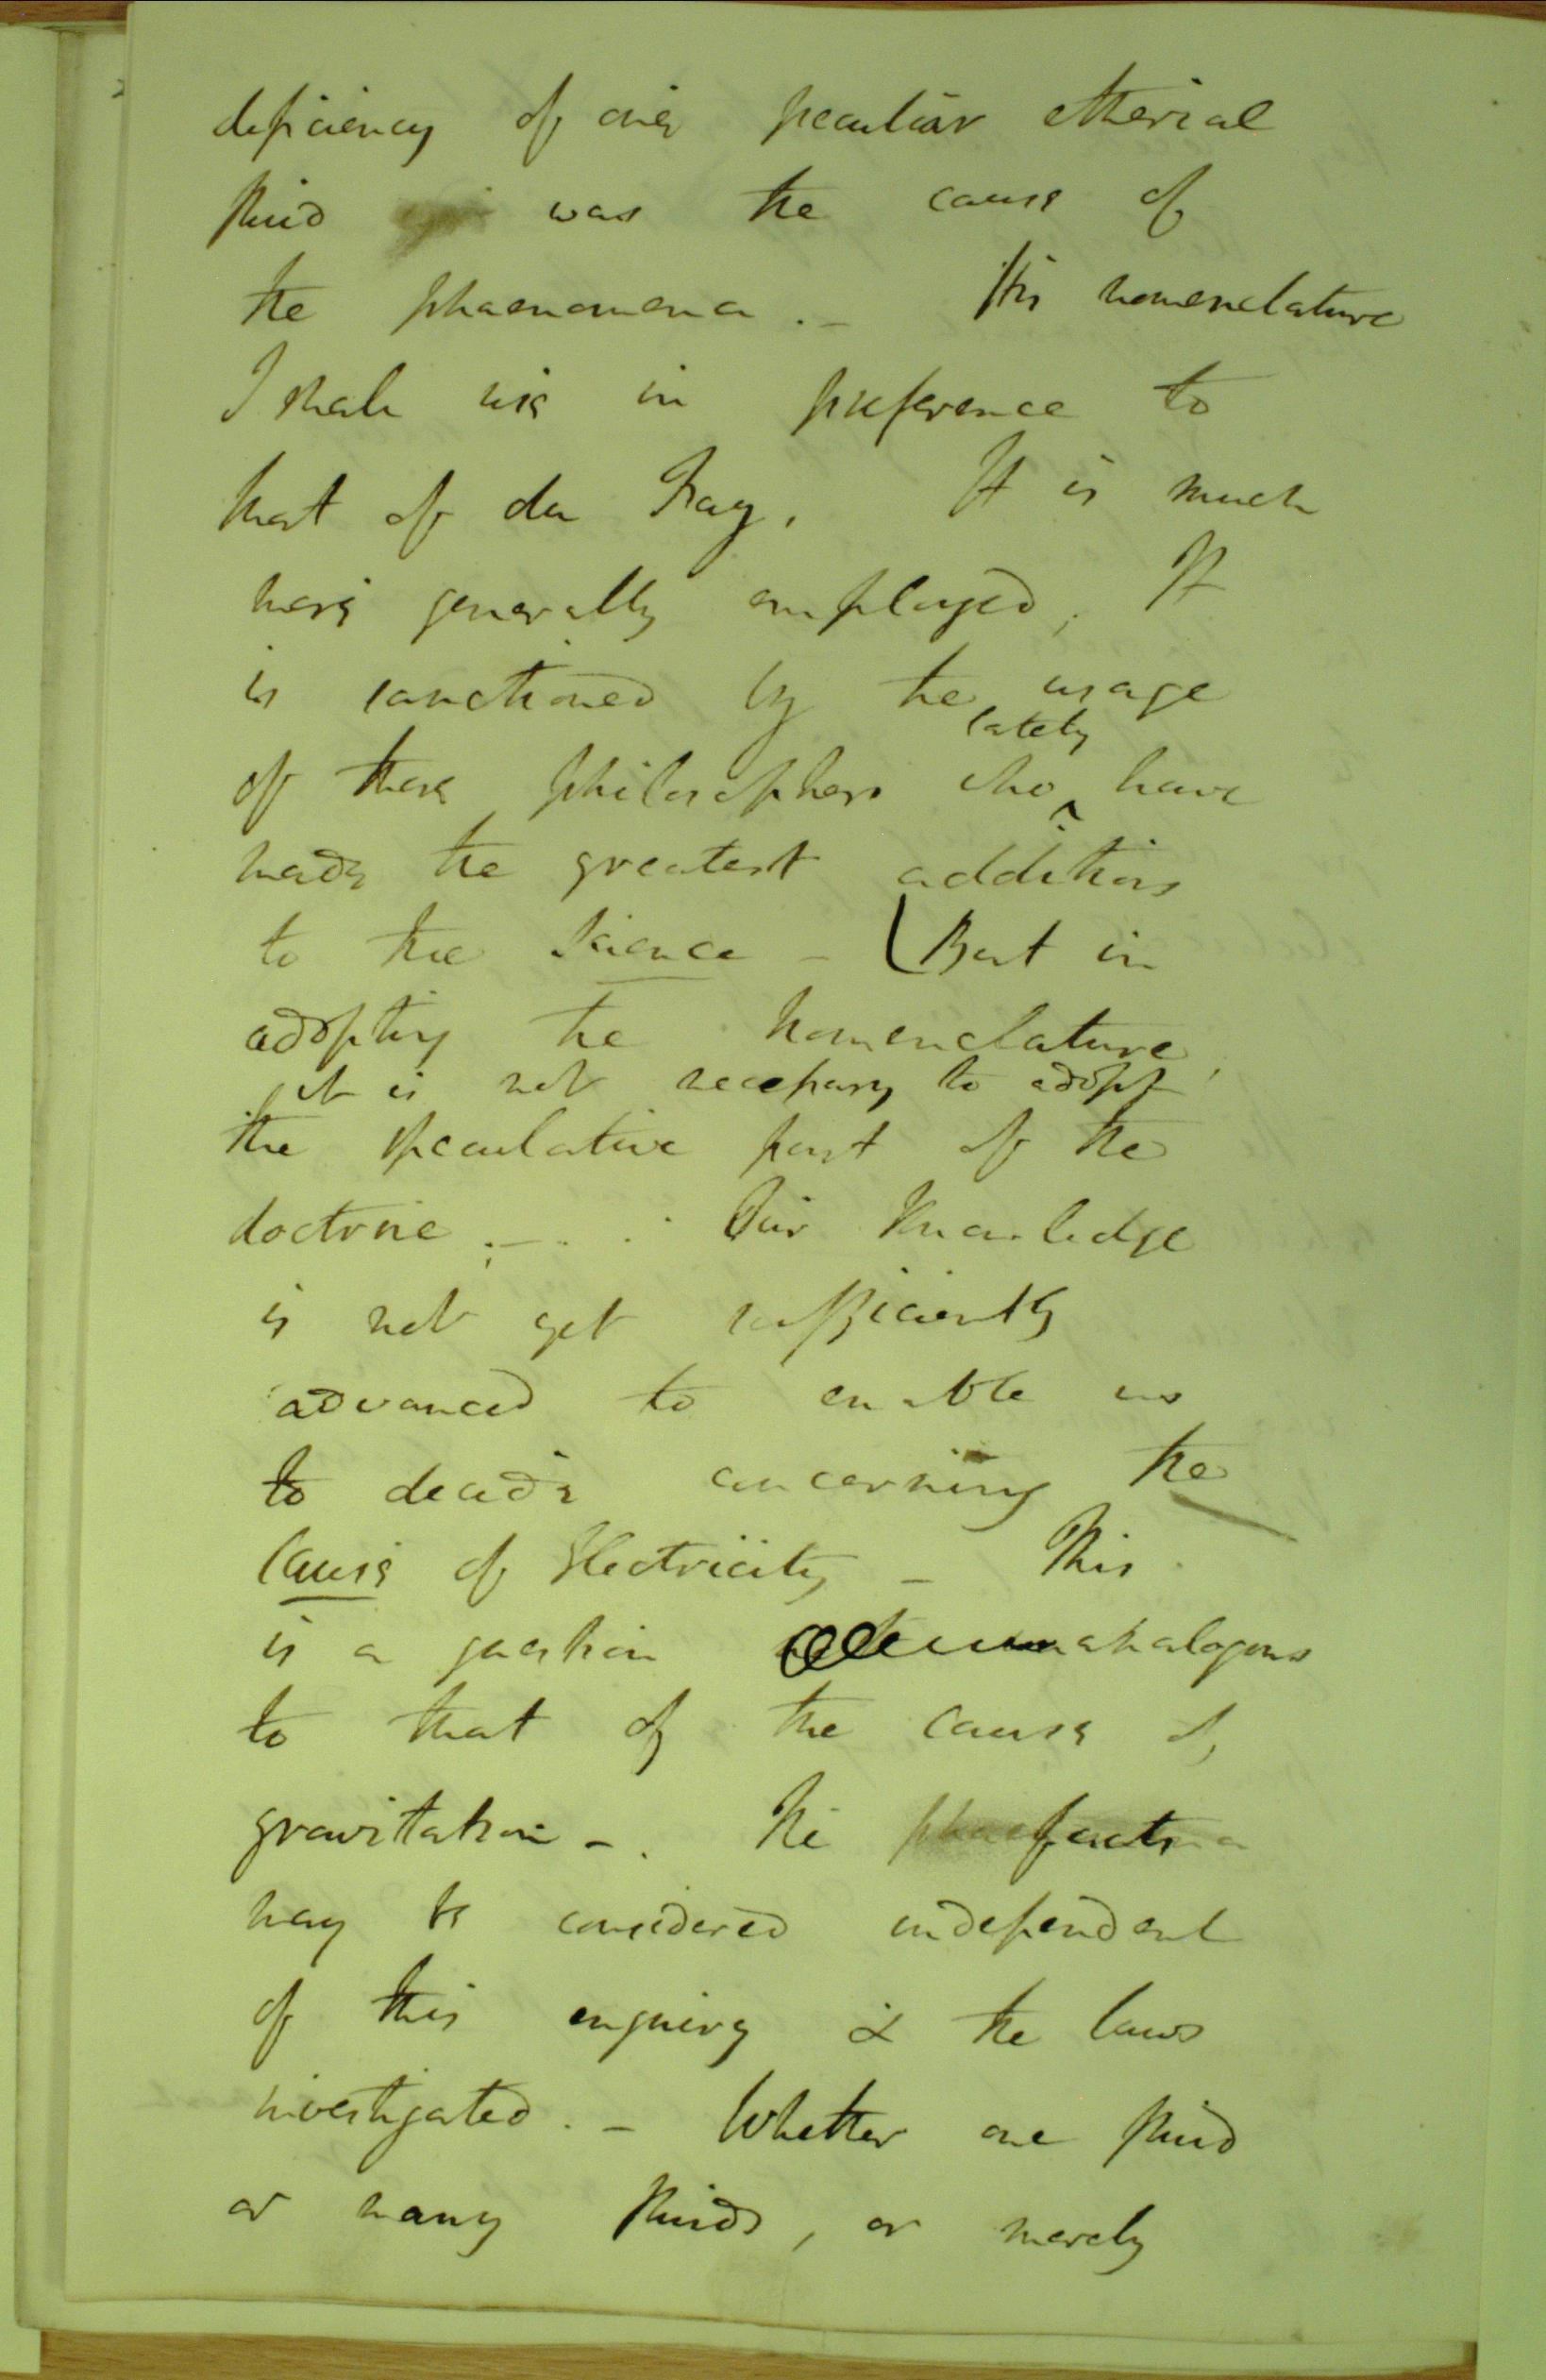 deficiency of one peculiar etherial
fluid was the cause of
the phaenomena. - This nomenclature
I shall use in preference to
that of du Fay. It is much
more generally employed, It
is sanctioned by the usage
lately
of those philosophers who ^ have
made the greatest additions
to the Science - (But in
adopting the nomenclature,
it is not necessary to adopt
the speculative part of the
doctrine; - . . Our knowledge
is not yet sufficiently
advanced to enable us
to decide concerning the
cause of Electricity - This
is a question analogous
to that of the cause of
gravitation - . The facts
may be considered independent
of this enquiry & the laws
investigated. - Whether one fluid
or many fluids, or merely